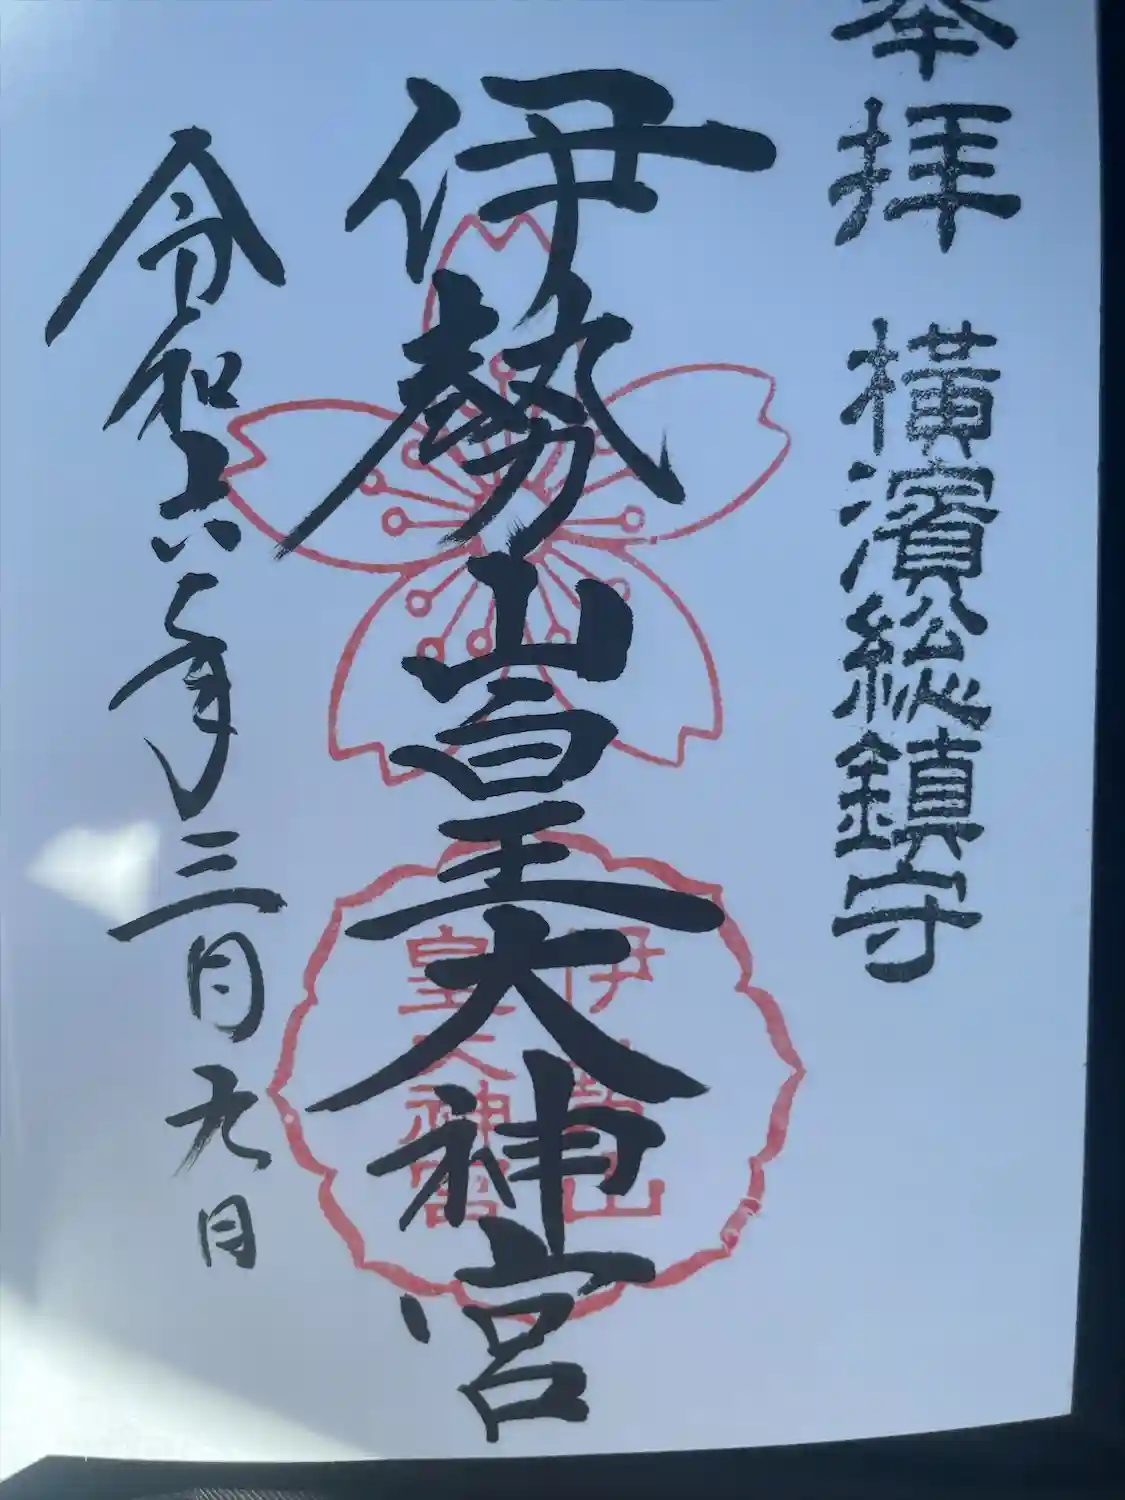 奉拝 横濱総鎮守
伊勢山皇大神宮
伊勢山
皇大神宮
令和六年三月九日